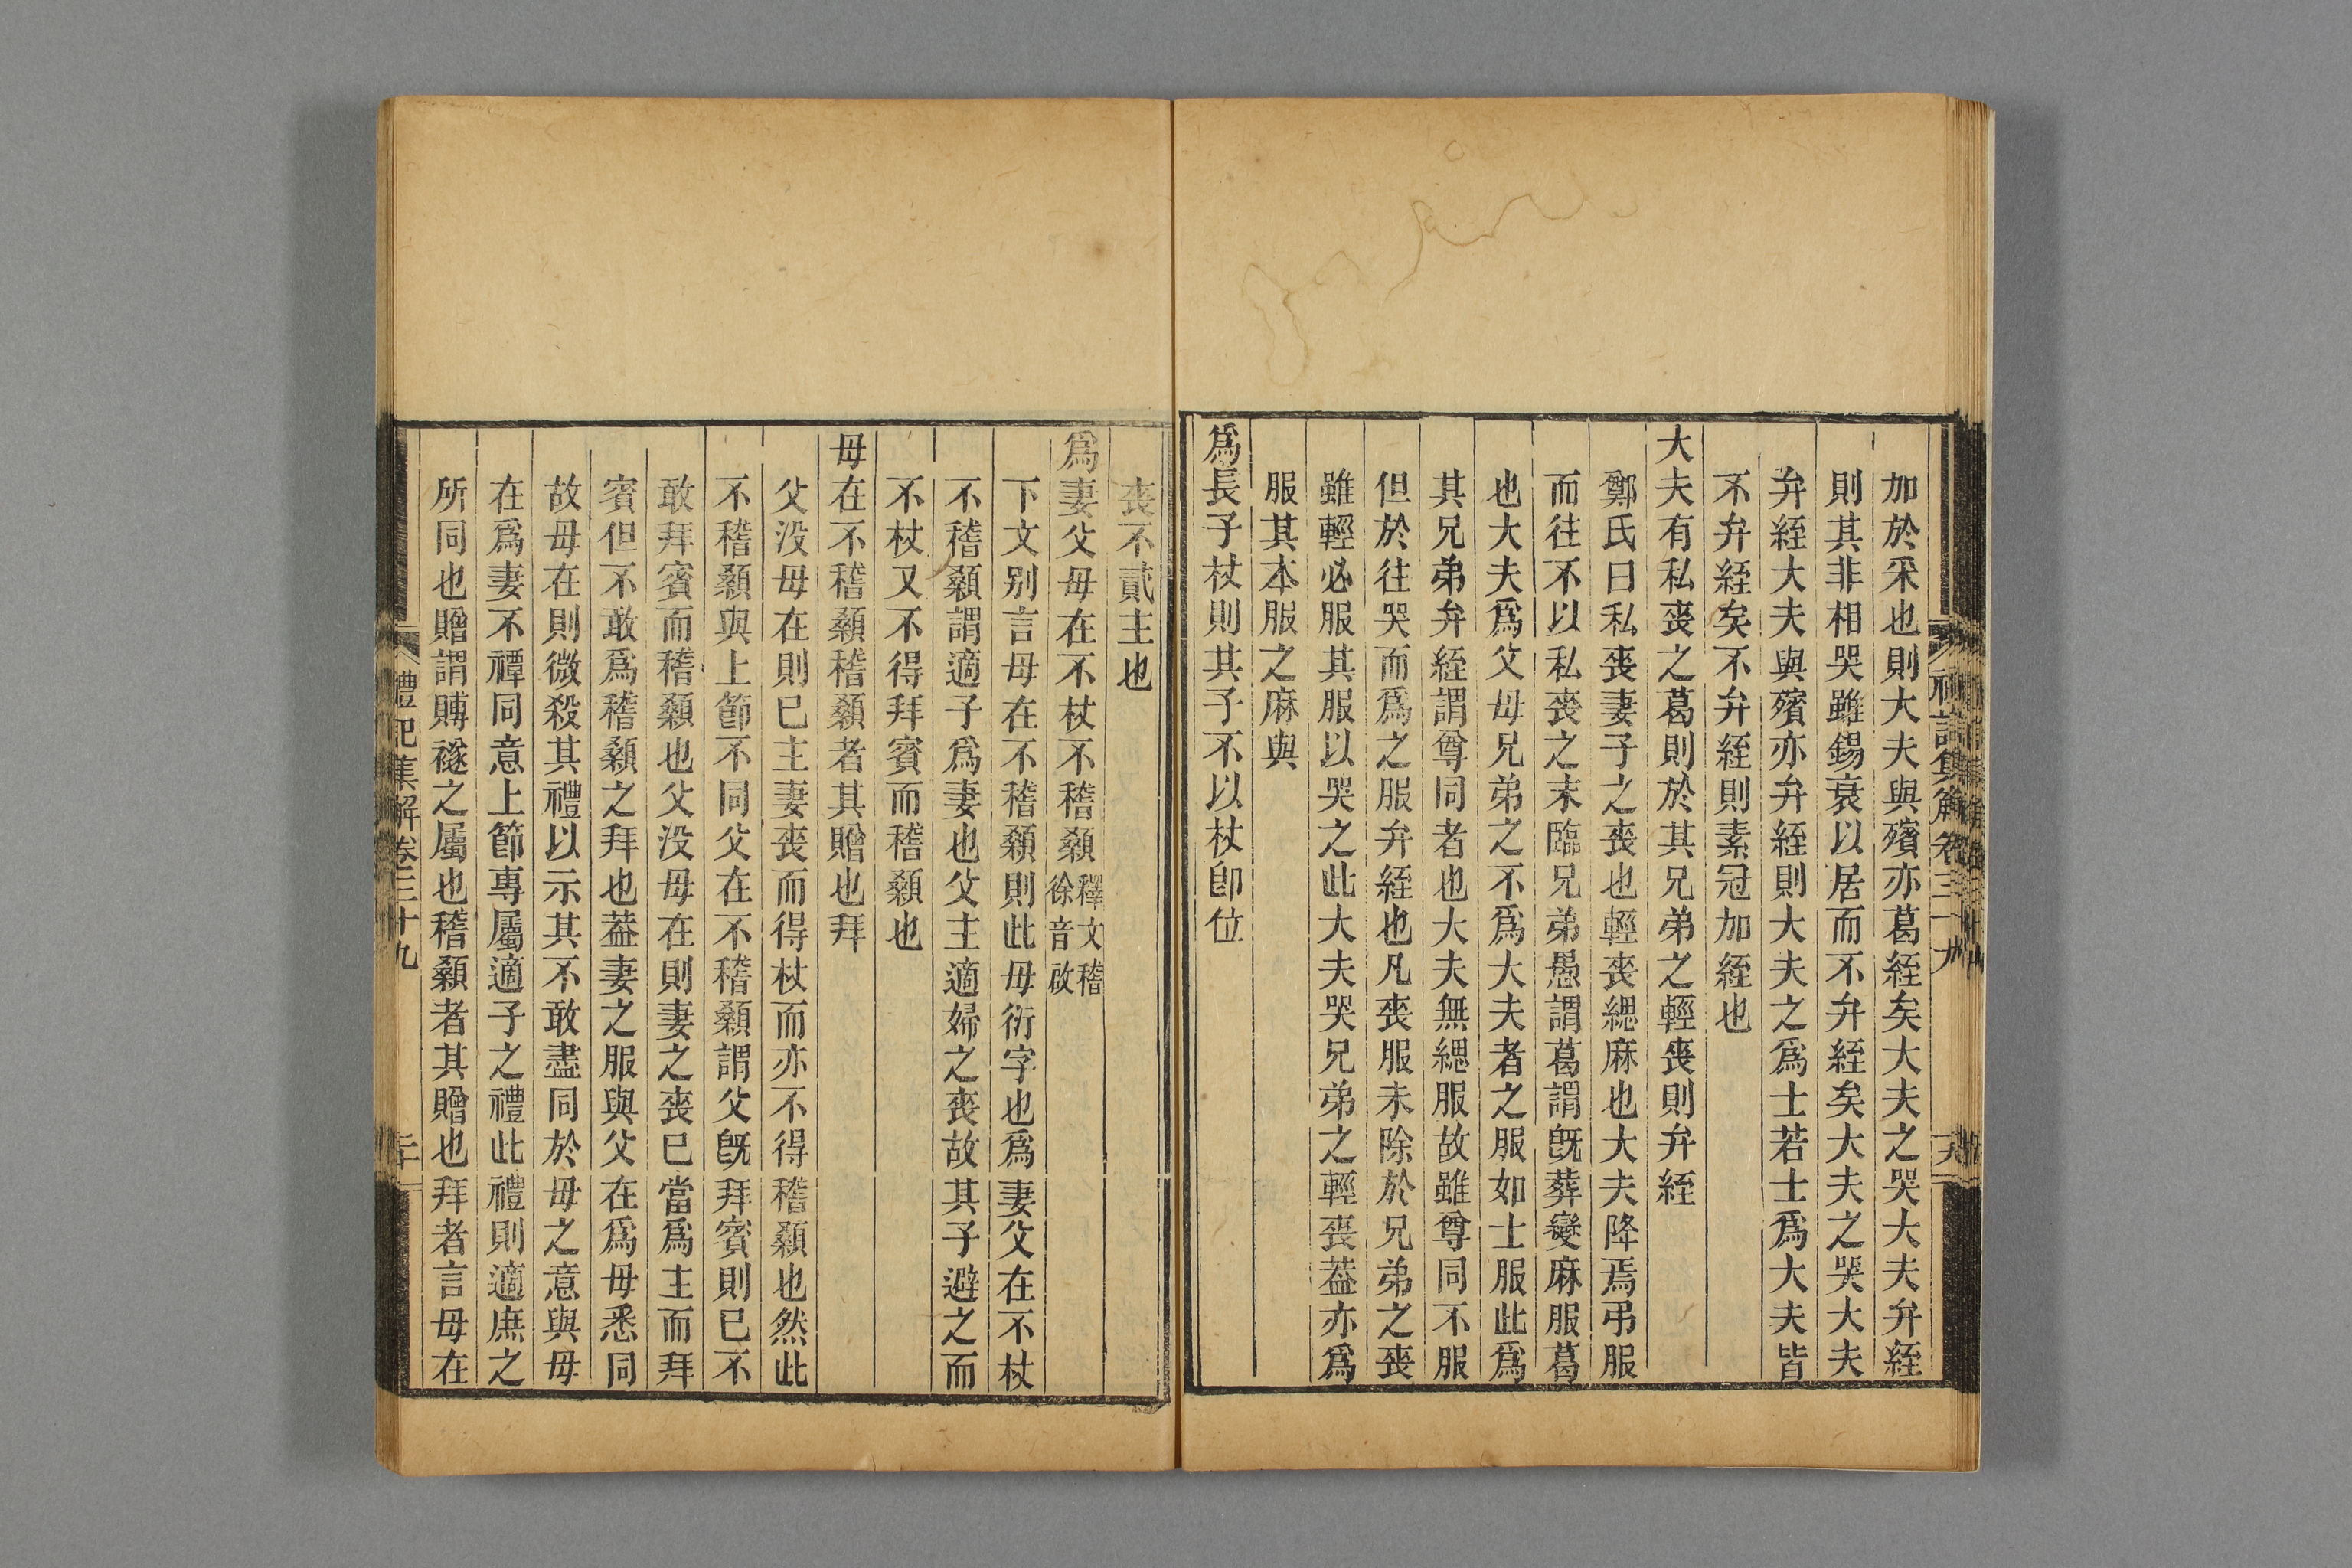 加於采也則大夫與殯亦葛絰矣大夫之哭大夫弁絰
則其非相哭雖錫衰以居而不弁絰矣大夫之哭大夫
弁絰大夫與殯亦弁絰則大夫之爲士若士爲大夫皆
不弁絰矣不弁絰則素冠加絰也
大夫有私喪之葛則於其兄弟之輕喪則弁絰
鄭氏曰私喪妻子之喪也輕喪緦麻也大夫降焉弔服
而往不以私喪之末臨兄弟愚謂葛謂旣葬變麻服葛
也大夫爲父母兄弟之不爲大夫者之服如士服此爲
其兄弟弁絰謂尊同者也大夫無緦服故雖尊同不服
但於往哭而爲之服弁絰也凡喪服未除於兄弟之喪
雖輕必服其服以哭之此大夫哭兄弟之輕喪葢亦爲
服其本服之麻與
爲長子杖則其子不以杖卽位
喪不貳主也
爲妻父母在不杖不稽顙釋文稽
徐音啟
下文别言母在不稽顙則此母衍字也爲妻父在不杖
不稽顙謂適子爲妻也父主適婦之喪故其子避之而
不杖又不得拜賓而稽顙也
母在不稽顙稽顙者其贈也拜
父没母在則已主妻喪而得杖而亦不得稽顙也然此
不稽顙與上節不同父在不稽顙謂父旣拜賓則已不
敢拜賓而稽顙也父没母在則妻之喪已當爲主而拜
賓但不敢爲稽顙之拜也葢妻之服與父在爲母悉同
故母在則微殺其禮以示其不敢盡同於母之意與母
在爲妻不禫同意上節專屬適子之禮此禮則適庶之
所同也贈謂賻襚之屬也稽顙者其贈也拜者言母在
禮記集解卷三十九
二十